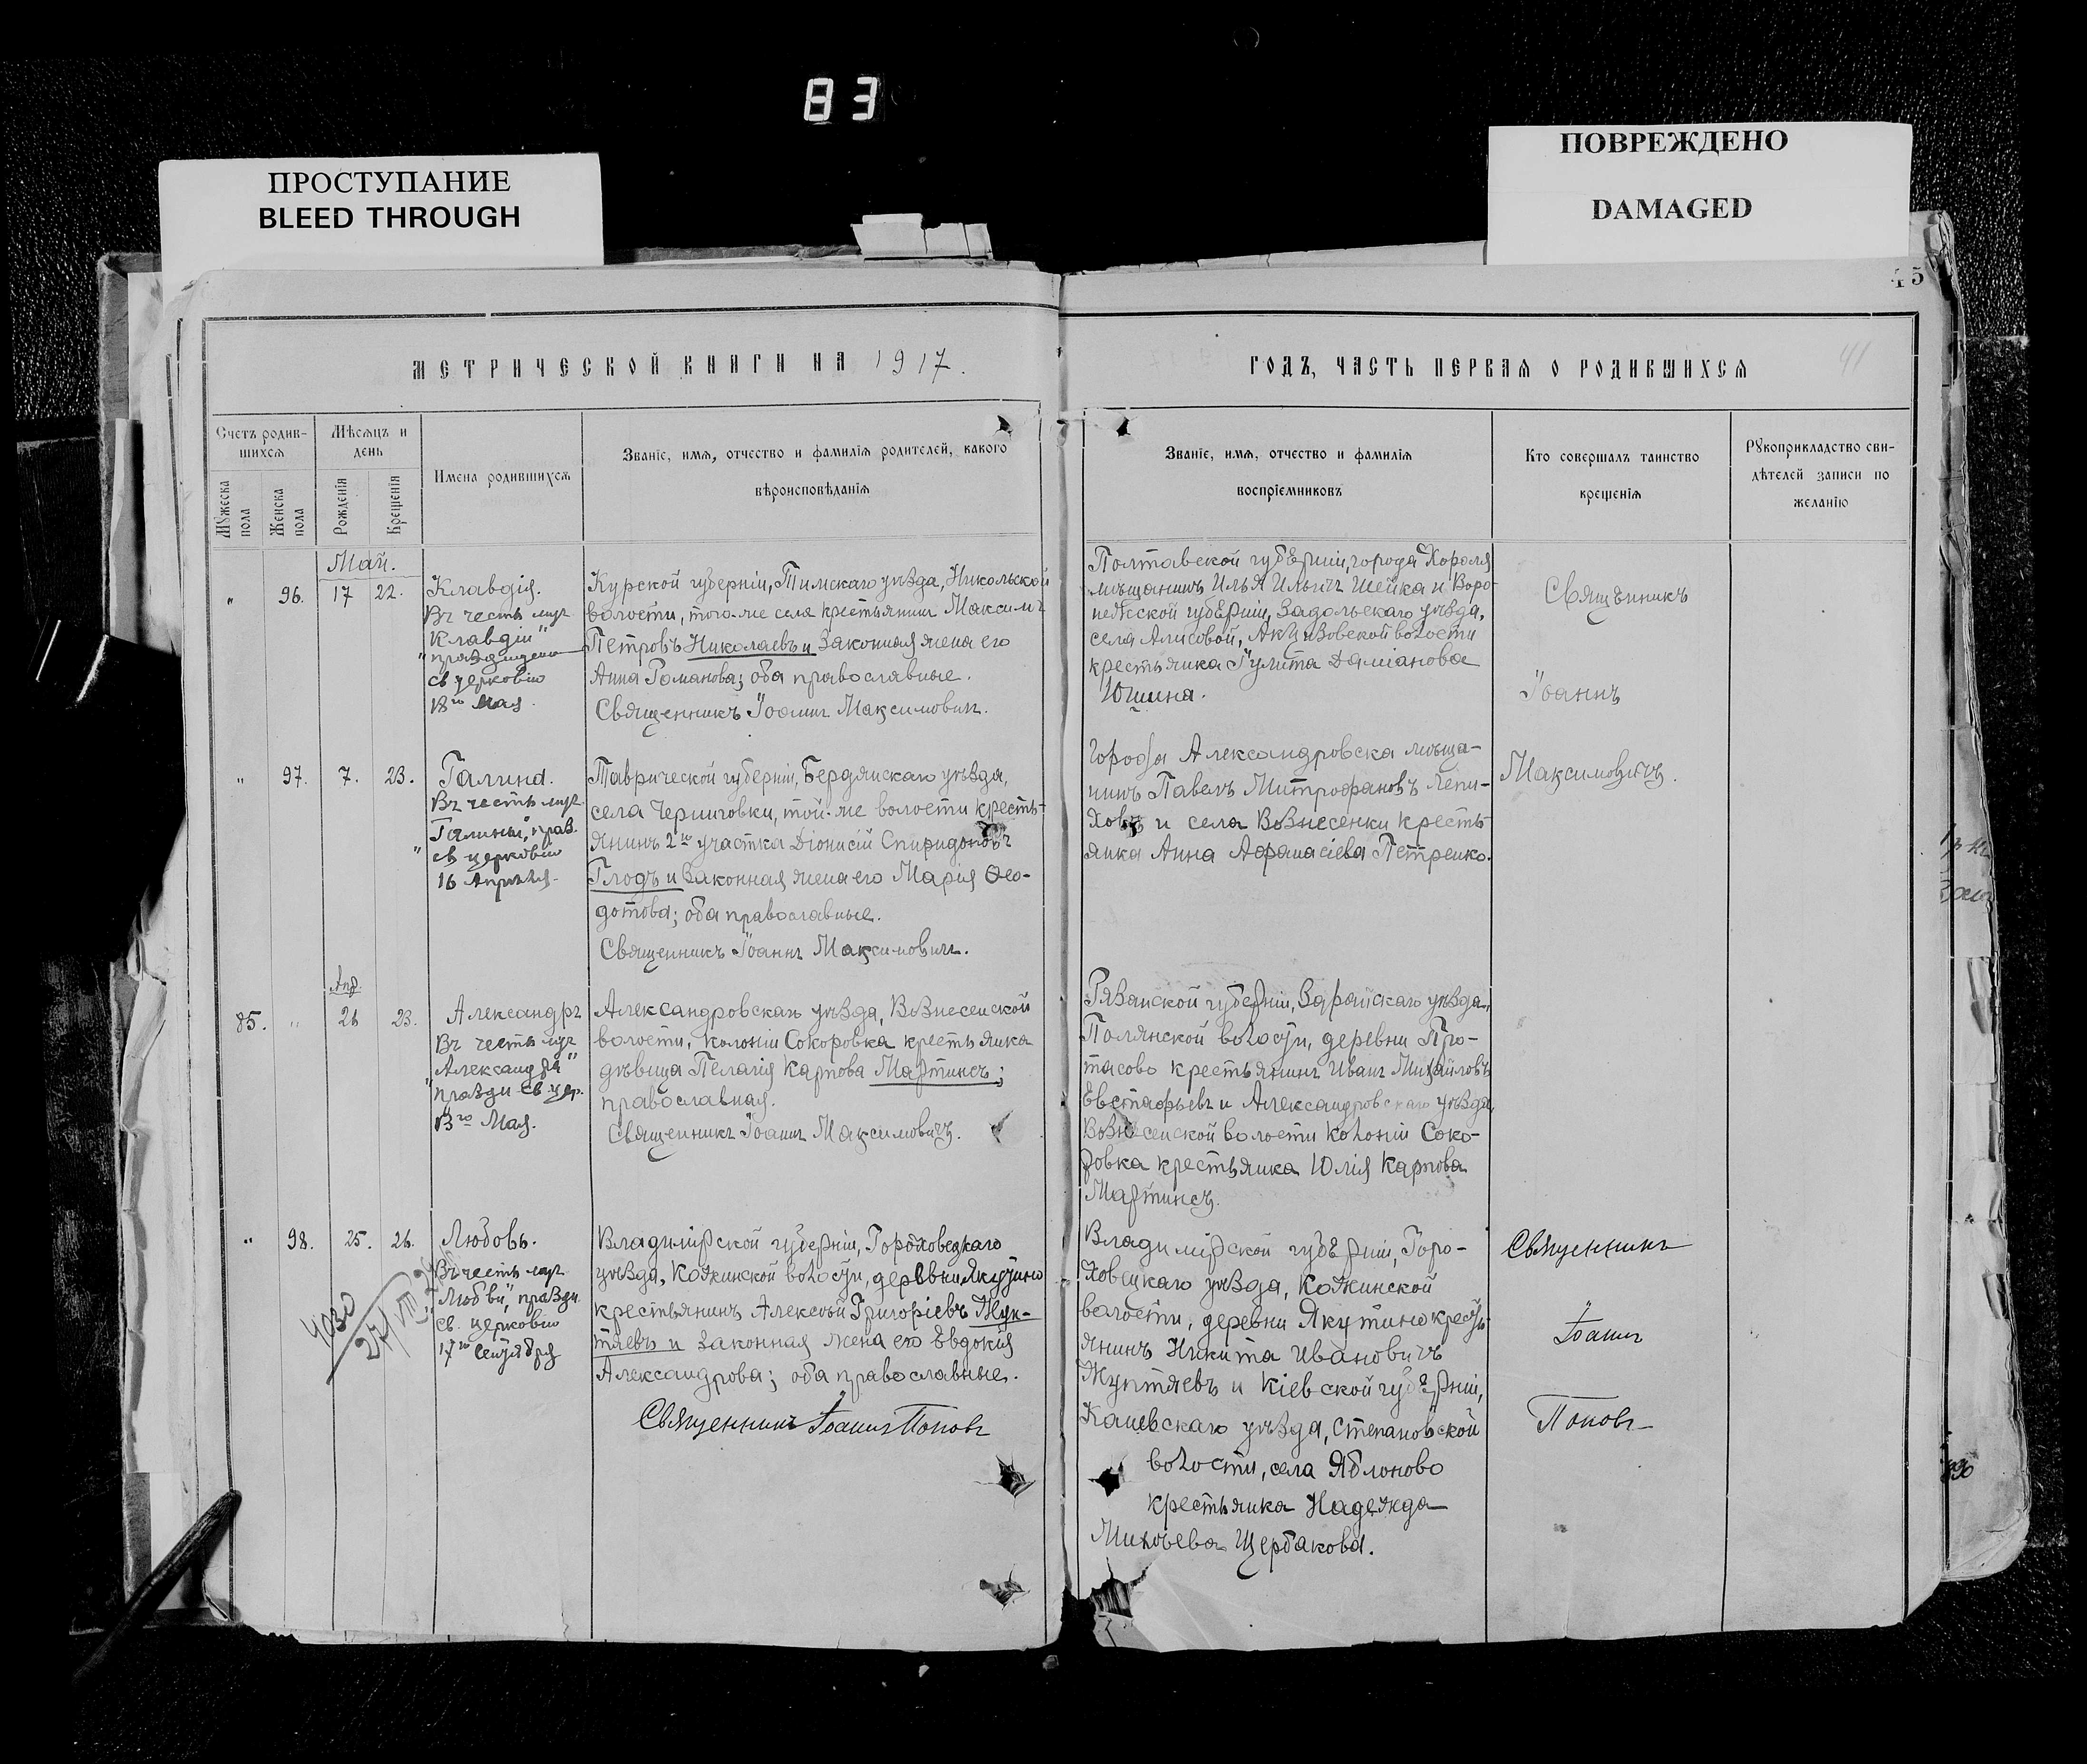 83
ПРОСТУПАНИЕ
BLEED THROUGH
ПОВРЕЖДЕНО
DAMAGED
45
МЕТРИЧЕСКОЙ КНИГИ НА 1917.
Счетъ родив-
шихся
Мѣсяцъ и
день
Имена родившихся
Званіе, имя, отчество и фамилія родителей, какого
вѣроисповѣданія
Мужеска
пола
Женска
пола
Рожденія
Крещенія
Май.
" 96. 17 22.
Клавдія.
Въ честь муч.
Клавдіи"
"празднуемой
св церковію
18го Мая.
Курской губерніи, Тимскаго уѣзда, Никольской
волости, того-же села крестьянинъ Максимъ
Петровъ Николаевъ и законная жена его
Анна Романова; оба православные.
Священникъ Іоаннъ Максимовичъ.
" 97. 7. 23.
Галина.
Въ честь муч.
Галины", празд.
" св церковію
16 Апрѣля.
Таврической губерніи, Бердянскаго уѣзда,
села Черниговки, той-же волости кресть-
янинъ 2го участка Діонисій Спиридоновъ
Глодъ и законная жена его Марія Ѳео-
дотова; оба православные.
Священникъ Іоаннъ Максимовичъ.
Апр.
85. " 26 23.
Александръ
Въ честь муч
Александра"
"праздн св цер.
13го Мая.
Александровскаго уѣзда, Вознесенской
волости, колоніи Сокоровка крестьянка
дѣвица Пелагія Карпова Мартинсъ;
православная.
Священникъ Іоаннъ Максимовичъ.
" 98. 25. 26.
Любовь.
Въ честь муч
"Любви", праздн
св. церковію
17го Сентября
4030
Владимірской губерніи, Гороховецкаго
уѣзда, Кожинской волости, деревни Якутино
крестьянинъ Алексѣй Григоріевъ Жуп-
тяевъ и законная жена его Евдокія
Александрова; оба православные.
Священникъ Іоаннъ Поповъ
ГОДЪ, ЧАСТЬ ПЕРВАЯ О РОДИВШИХСЯ
41
Званіе, имя, отчество и фамилія
воспріемниковъ
Кто совершалъ таинство
крещенія
Рукоприкладство сви-
дѣтелей записи по
желанію
Полтавской губерніи, города Хороля
мѣщанинъ Илья Ильичъ Шейка и Воро-
нежской губерніи, Задонскаго уѣзда,
села волости
крестьянка Іулита Даміанова
Юшина.
Священникъ
Іоаннъ
Максимовичъ.
Города Александровска мѣща-
нинъ Павелъ Митрофановъ Лепи-
ховъ и села Вознесенки кресть-
янка Анна Афанасіева Петренко.
Рязанской губерніи, Зарайскаго уѣзда,
Полянской волости, деревни Про-
тасово крестьянинъ Иванъ Михайловъ
Евстафьевъ и Александровскаго уѣзда,
Вознесенской волости колоніи Соко-
ровка крестьянка Юлія Карпова
Мартинсъ.
Владимірской губерніи, Горо-
ховецкаго уѣзда, Кожинской
волости, деревни Якутино кресть-
янинъ Никита Ивановичъ
Жуптяевъ и Кіевской губерніи,
Каневскаго уѣзда, Степановской
волости, села Яблоново
крестьянка Надежда
Михѣева Щербакова.
Священникъ
Іоаннъ
Поповъ